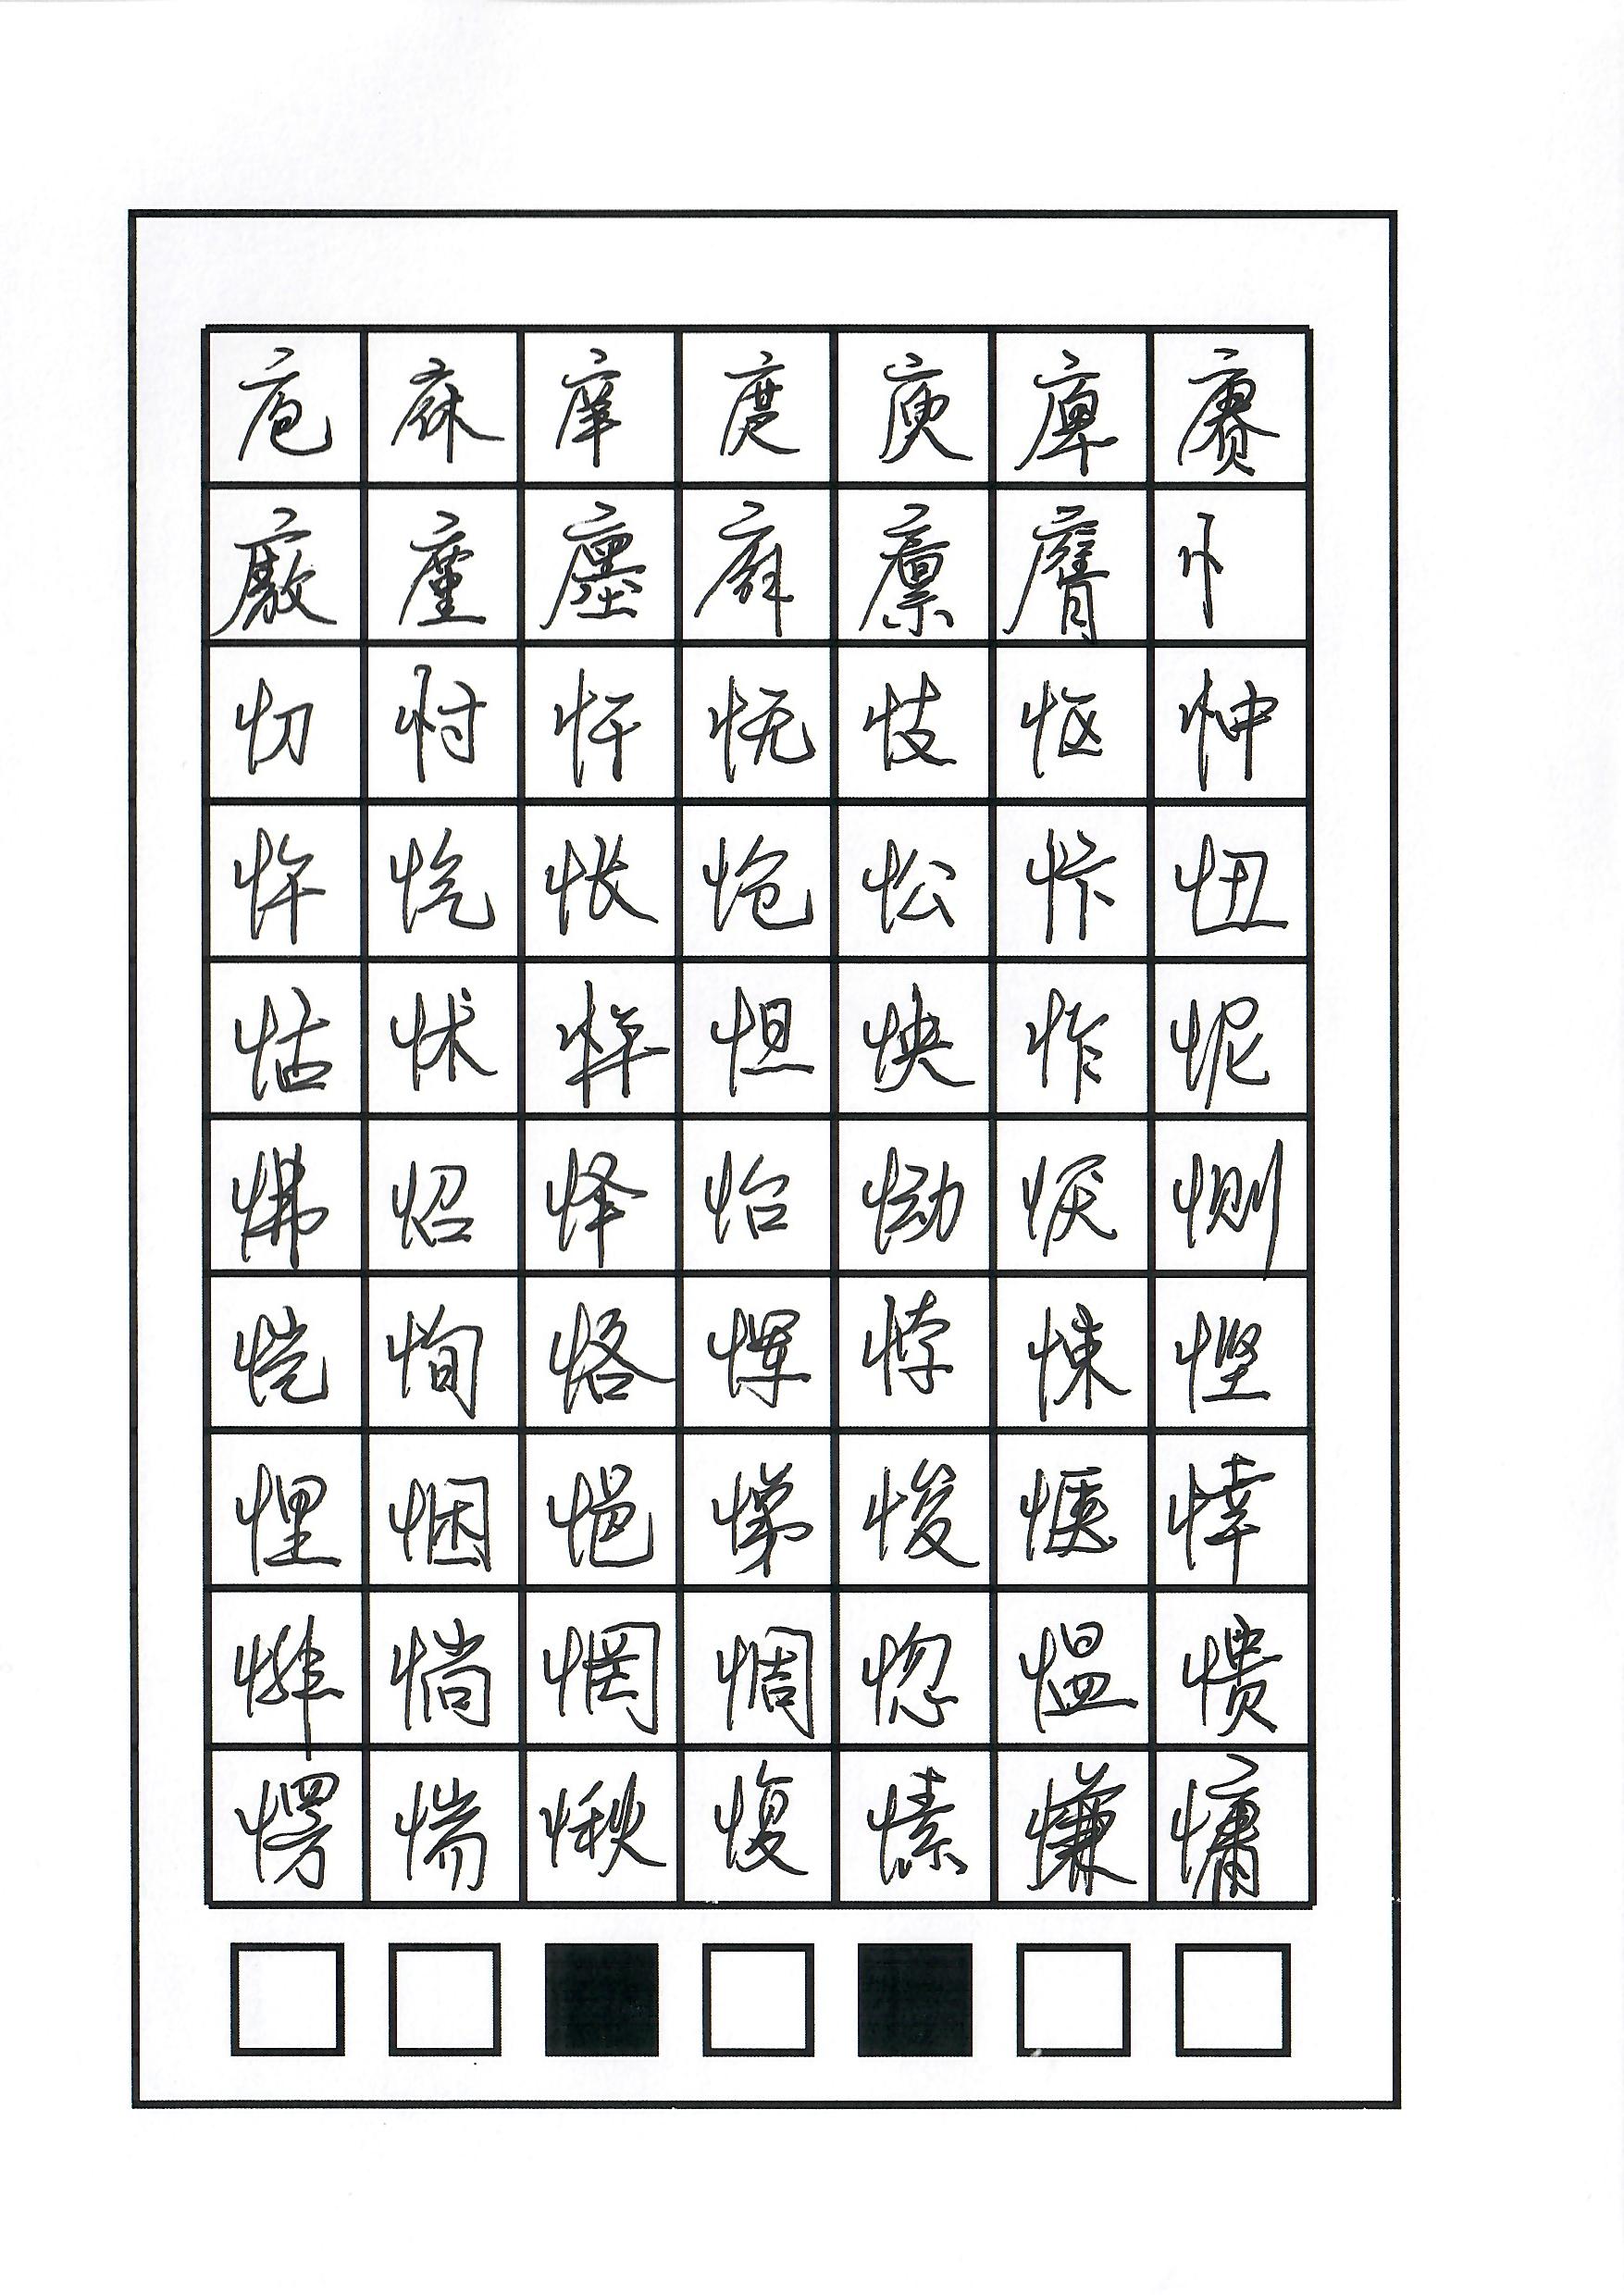 庖庥庠庹庾庳赓
廒廑廛廨廪膺忄
忉忖忏怃忮怄忡
忤忾怅怆忪忭忸
怙怵怦怛怏怍怩
怫怊怿怡恸恹恻
恺恂恪恽悖悚悭
悝悃悒悌悛惬悻
悱惝惘惆惚愠愦
愣惴愀愎愫慊慵